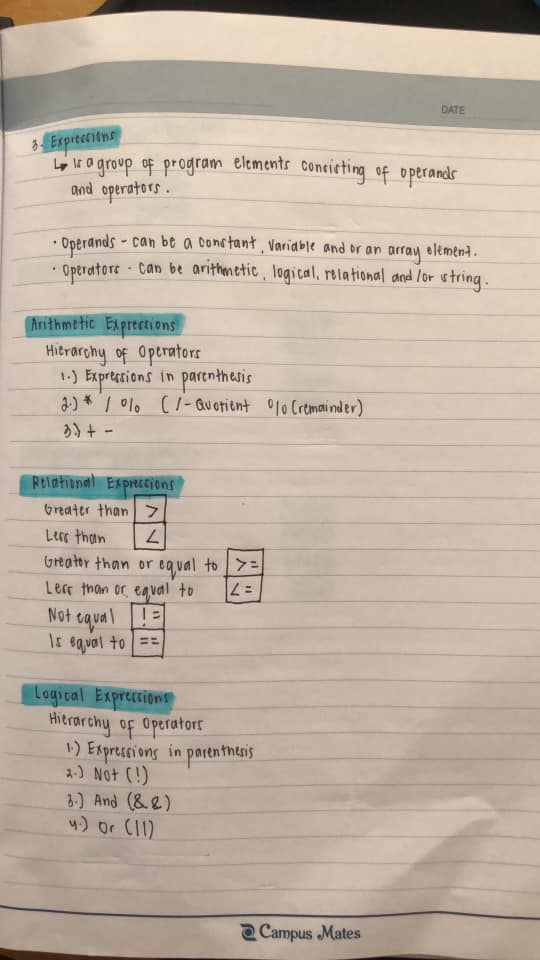 DATE
3. Expressions
↳ is a group of program elements consisting of operands
and operators.
· Operands - can be a constant, Variable and or an array element.
· Operators - can be arithmetic, logical, relational and /or string.
Arithmetic Expressions
Hierarchy of Operators
1.) Expressions in parenthesis
2.) * / % ( /- Quotient % (remainder)
3.) + -
Relational Expressions
Greater than >
Less than <
Greater than or equal to >=
Less than or equal to <=
Not equal !=
Is equal to ==
Logical Expressions
Hierarchy of Operators
1.) Expressions in parenthesis
2.) Not (!)
3.) And (&&)
4.) Or (||)
Campus Mates